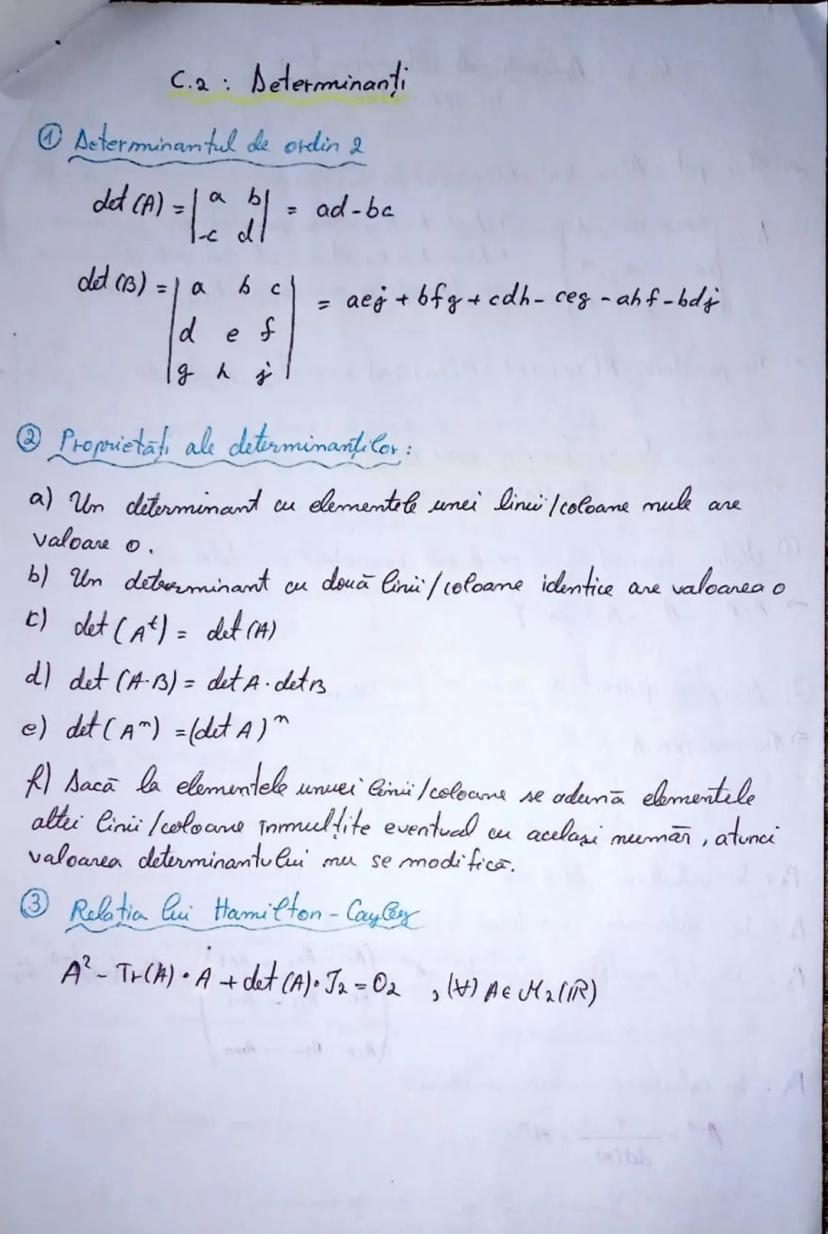 C.2 : Determinanți
① Determinantul de ordin 2
det (A) = | a b | = ad - bc
| c d |
det (B) = | a b c | = aej + bfg + cdh - ceg - ahf - bdj
| d e f |
| g h j |
② Proprietăți ale determinanților:
a) Un determinant cu elementele unei linii/coloane nule are
valoare 0.
b) Un determinant cu două linii/coloane identice are valoarea 0
c) det (Aᵗ) = det (A)
d) det (A·B) = det A · det B
e) det (Aⁿ) = (det A)ⁿ
f) Dacă la elementele unuei linii/coloane se adună elementele
altei linii/coloane înmulțite eventual cu același număr, atunci
valoarea determinantului nu se modifică.
③ Relația lui Hamilton - Cayley
A² - Tr(A) · A + det (A) · I₂ = O₂ , (∀) A ∈ M₂(ℝ)